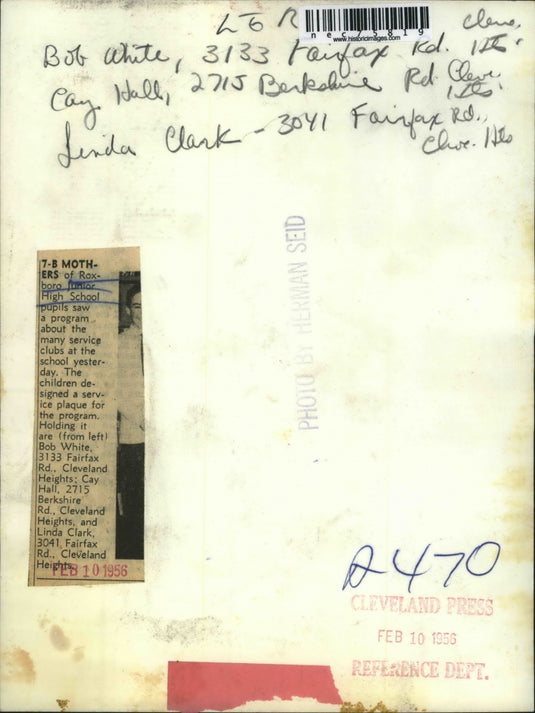 L to R
nec73819
www.historicimages.com
Cleve.
Bob White, 3133 Fairfax Rd. Hts.
Cay Hall, 2715 Berkshire Rd Cleve. Hts.
Linda Clark - 3041 Fairfax Rd.,
Cleve. Hts
7-B MOTH-
ERS of Rox-
boro Junior
High School
pupils saw
a program
about the
many service
clubs at the
school yester-
day. The
children de-
signed a serv-
ice plaque for
the program.
Holding it
are (from left)
Bob White,
3133 Fairfax
Rd., Cleveland
Heights; Cay
Hall, 2715
Berkshire
Rd., Cleveland
Heights, and
Linda Clark,
3041 Fairfax
Rd., Cleveland
Heights.
FEB 10 1956
PHOTO BY HERMAN SEID
A470
CLEVELAND PRESS
FEB 10 1956
REFERENCE DEPT.